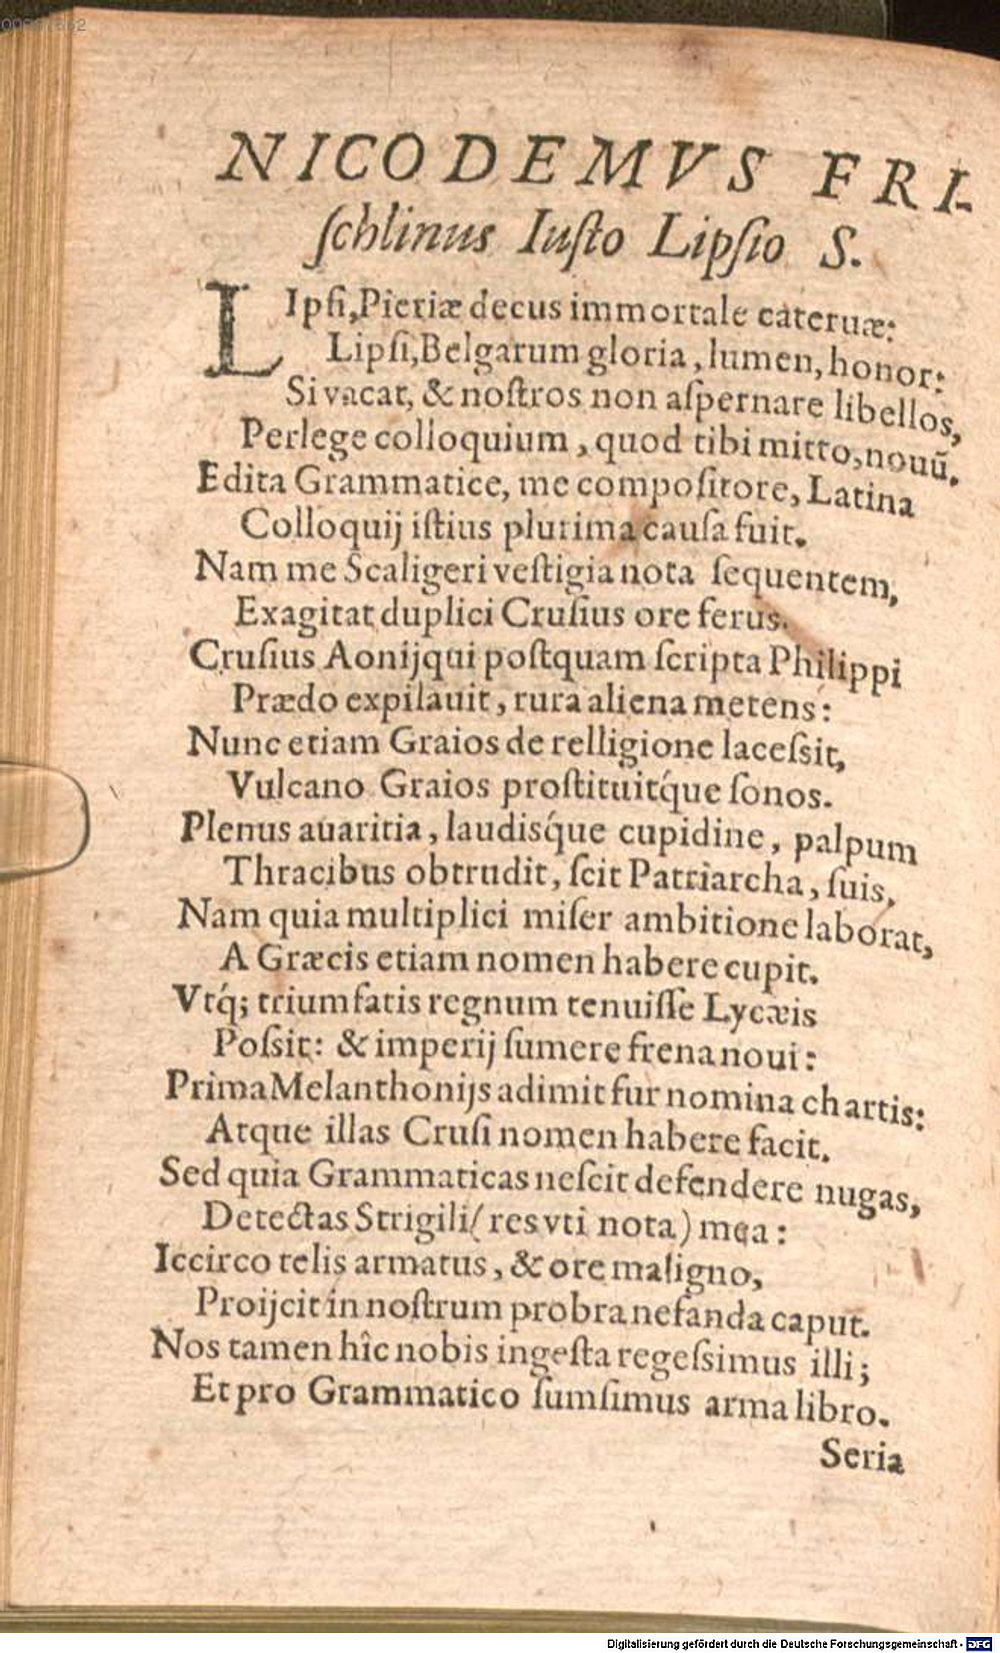 NICODEMVS FRI-
ſchlinus Iuſto Lipſio S.
LIpſi, Pieriæ decus immortale cateruæ:
Lipſi, Belgarum gloria, lumen, honor:
Si vacat, & noſtros non aſpernare libellos,
Perlege colloquium, quod tibi mitto, nouũ.
Edita Grammatice, me compoſitore, Latina
Colloquij iſtius plurima cauſa fuit.
Nam me Scaligeri veſtigia nota ſequentem,
Exagitat duplici Cruſius ore ferus.
Cruſius Aonij qui poſtquam ſcripta Philippi
Prædo expilauit, rura aliena metens:
Nunc etiam Graios de relligione laceſsit,
Vulcano Graios proſtituit́que ſonos.
Plenus auaritia, laudiś́que cupidine, palpum
Thracibus obtrudit, ſcit Patriarcha, ſuis.
Nam quia multiplici miſer ambitione laborat,
A Græcis etiam nomen habere cupit.
Vtq́; trium fatis regnum tenuiſſe Lycæis
Poſsit: & imperij ſumere frena noui:
Prima Melanthonijs adimit fur nomina chartis:
Atque illas Cruſi nomen habere facit.
Sed quia Grammaticas neſcit defendere nugas,
Detectas Strigili (res vti nota) mea:
Iccirco telis armatus, & ore maligno,
Proijcit in noſtrum probra nefanda caput.
Nos tamen hîc nobis ingeſta regeſsimus illi;
Et pro Grammatico ſumſimus arma libro.
Seria
Digitalisierung gefördert durch die Deutsche Forschungsgemeinschaft - DFG